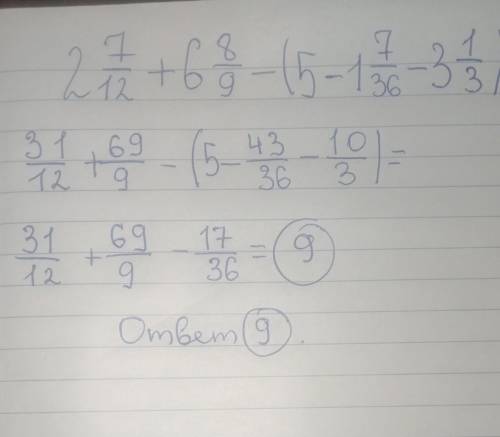 2 7/12 + 6 8/9 - (5 - 1 7/36 - 3 1/3)
31/12 + 69/9 - (5 - 43/36 - 10/3) =
31/12 + 69/9 - 17/36 = 9
Ответ 9.